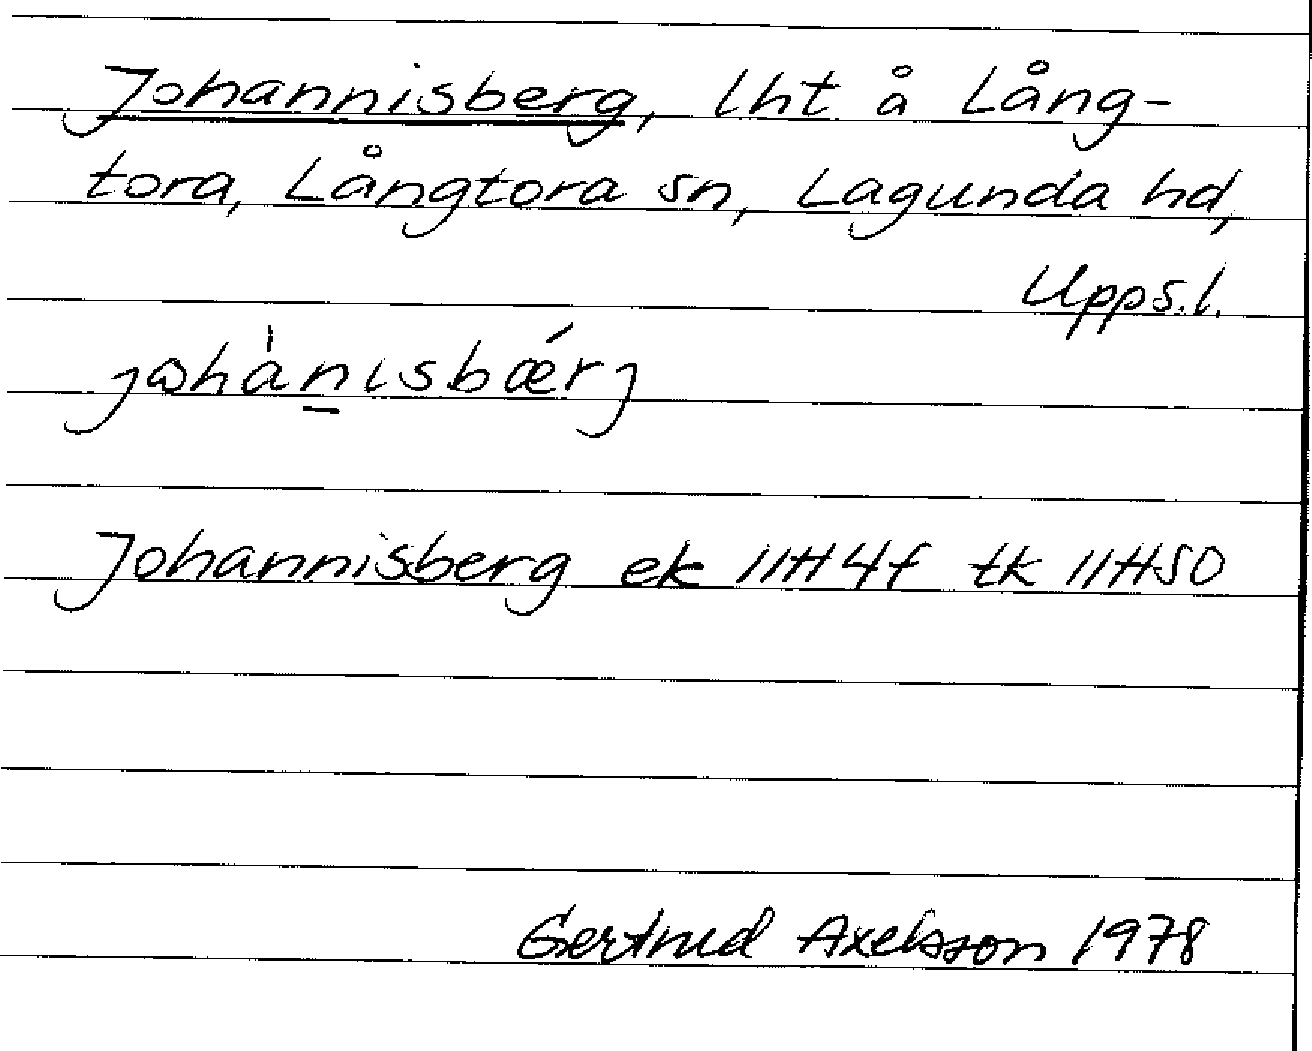 Johannisberg, lht å Lång-
tora, Långtora sn, Lagunda hd,
Upps.l.
johànisbǽrj
Johannisberg ek 11H4f tk 11HSO
Gertrud Axelsson 1978